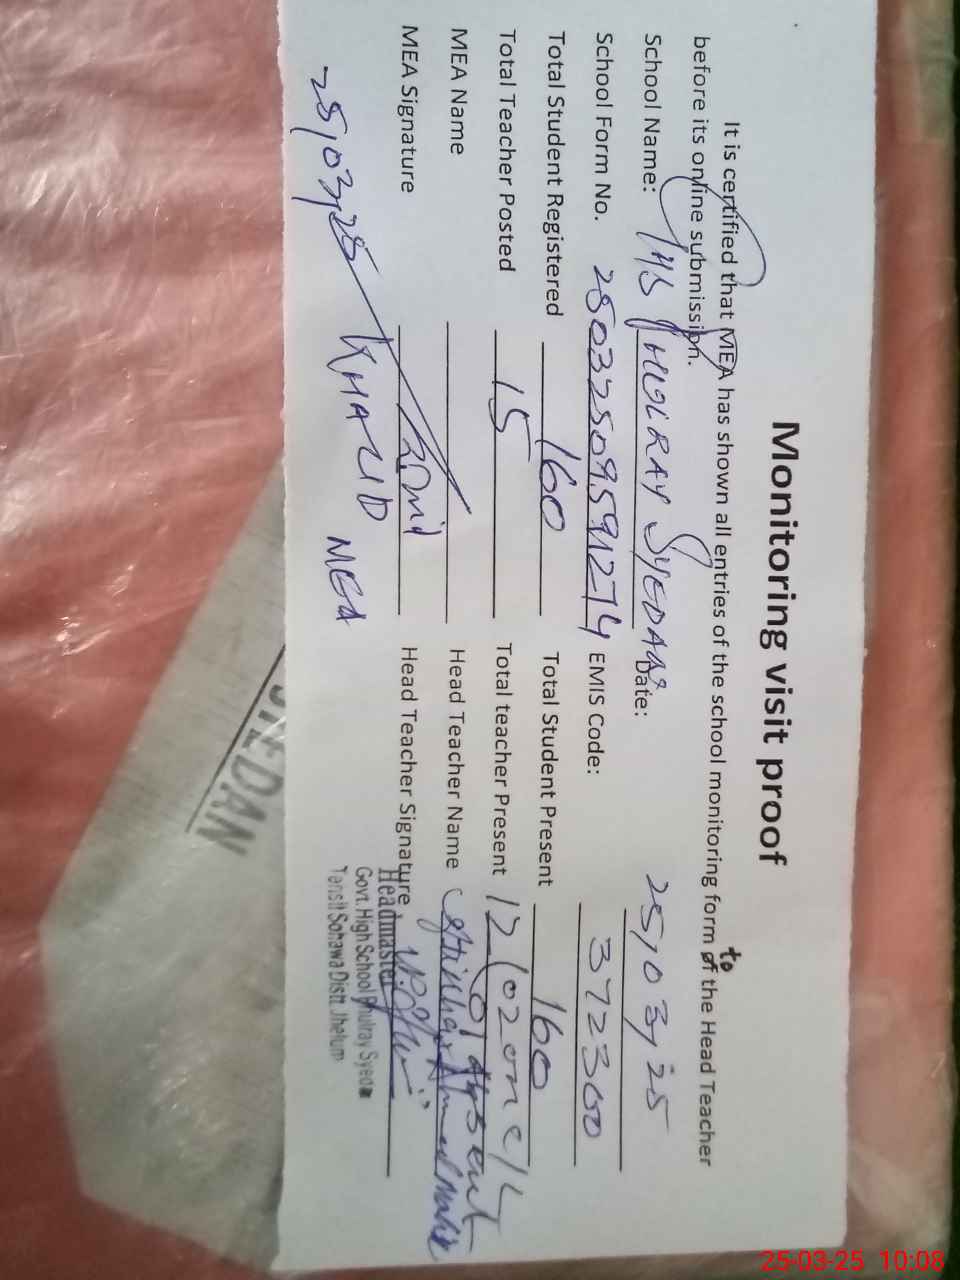 Monitoring visit proof
It is certified that MEA has shown all entries of the school monitoring form of to the Head Teacher
before its online submission.
School Name: GHS PHULRAY SYEDAN Date: 25,03,25
School Form No. EMIS Code: 372300
Total Student Registered 160 Total Student Present 160
Total Teacher Posted 15 Total teacher Present 12 (02 on c/L
01 Absent
MEA Name Head Teacher Name
MEA Signature Head Teacher Signature
25,03,25 KHALID MEA
Headmaster
Govt. High School Phulray Syedan
Tehsil Sohawa Distt. Jhelum
SYEDAN
25-03-25 10:08